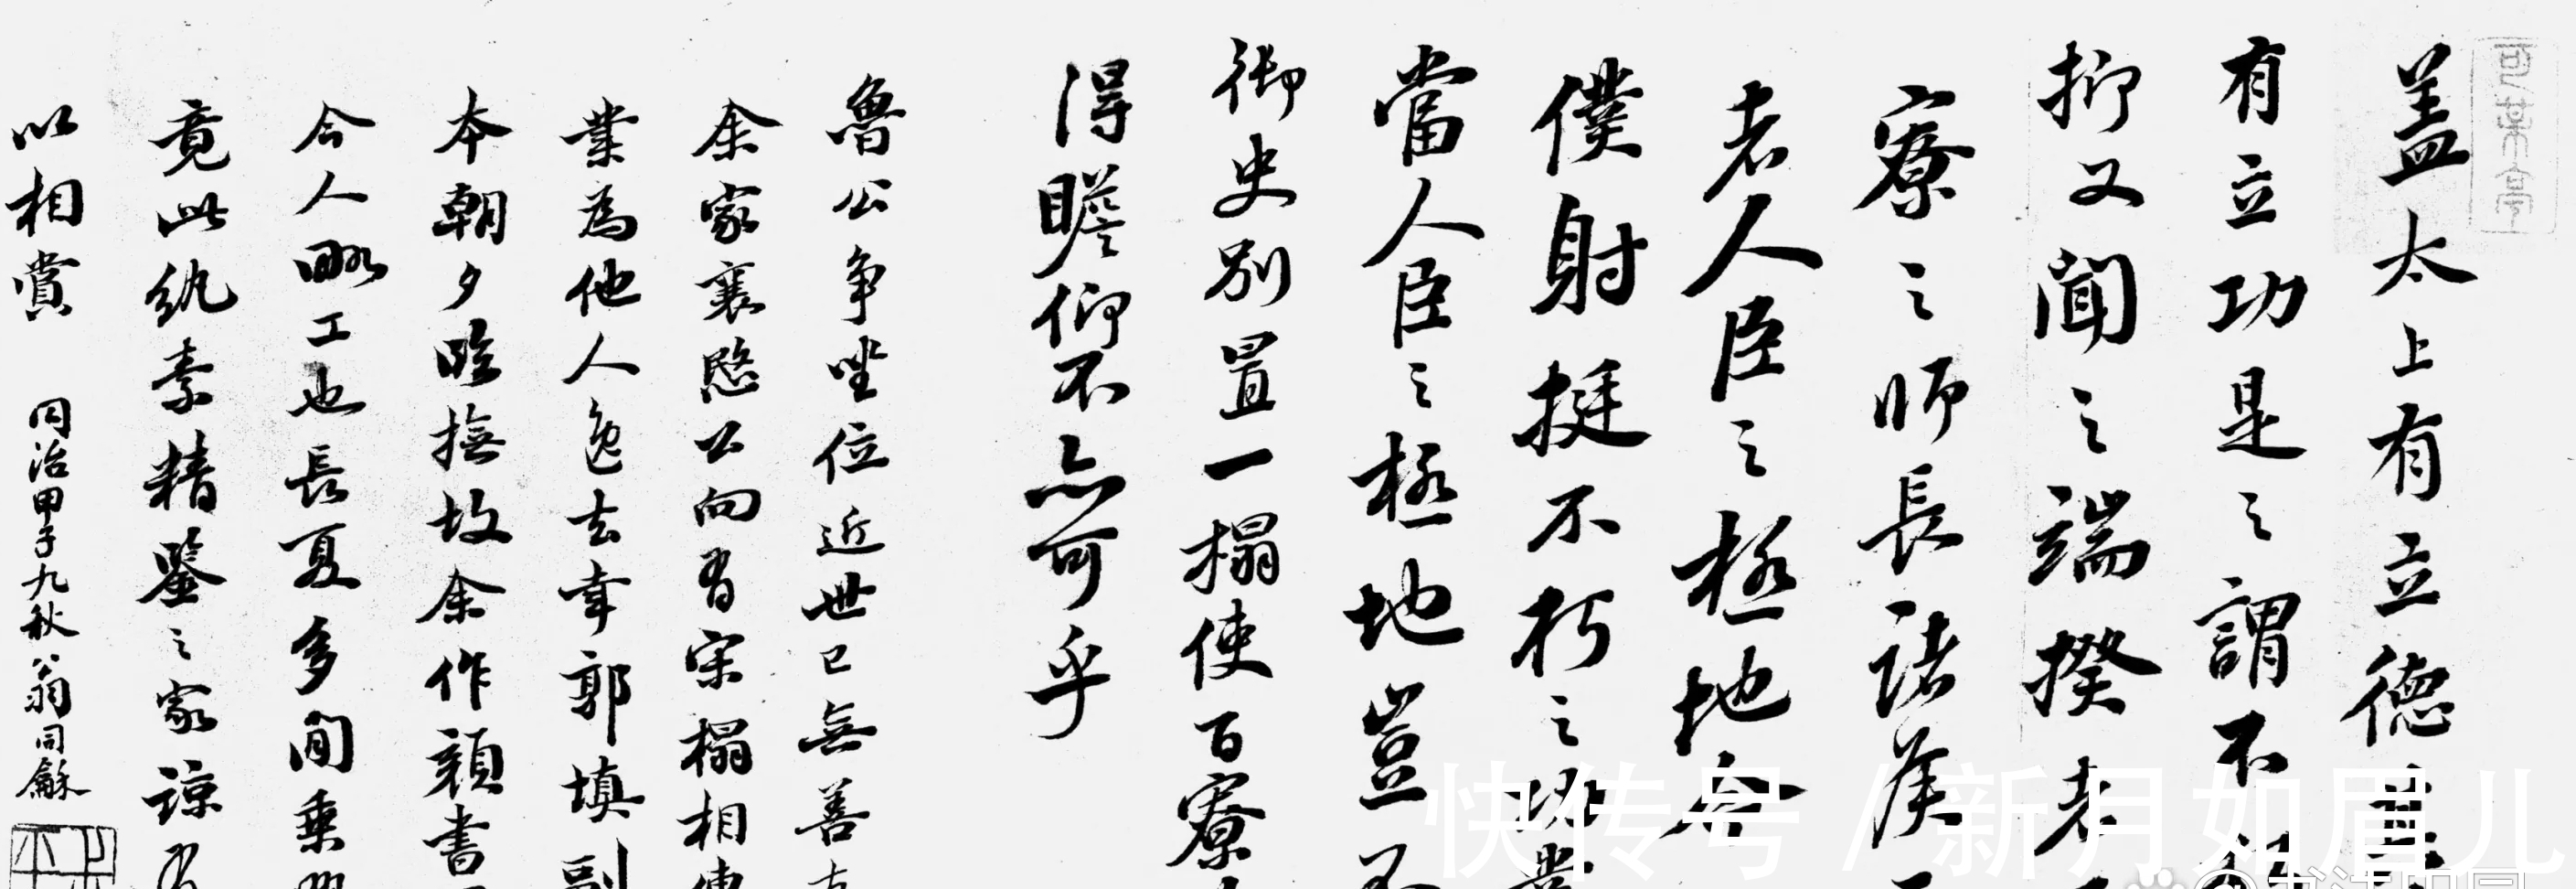 蓋太上有立德其
有立功是之謂不朽
抑又聞之端揆者
寮之師長諸侯王
者人臣之極地今
僕射挺不朽之功業
當人臣之極地豈不
御史別置一榻使百寮
得瞻仰不亦可乎
魯公爭坐位近世已無善本
余家襄愍公向有宋榻相傳
業為他人逸去幸郭填副
本朝夕臨撫故余作顏書
今人略工也長夏多閒乘興
竟此紈素精鑒之家諒有
以相賞
同治甲子九秋翁同龢
快传号/新月如眉儿